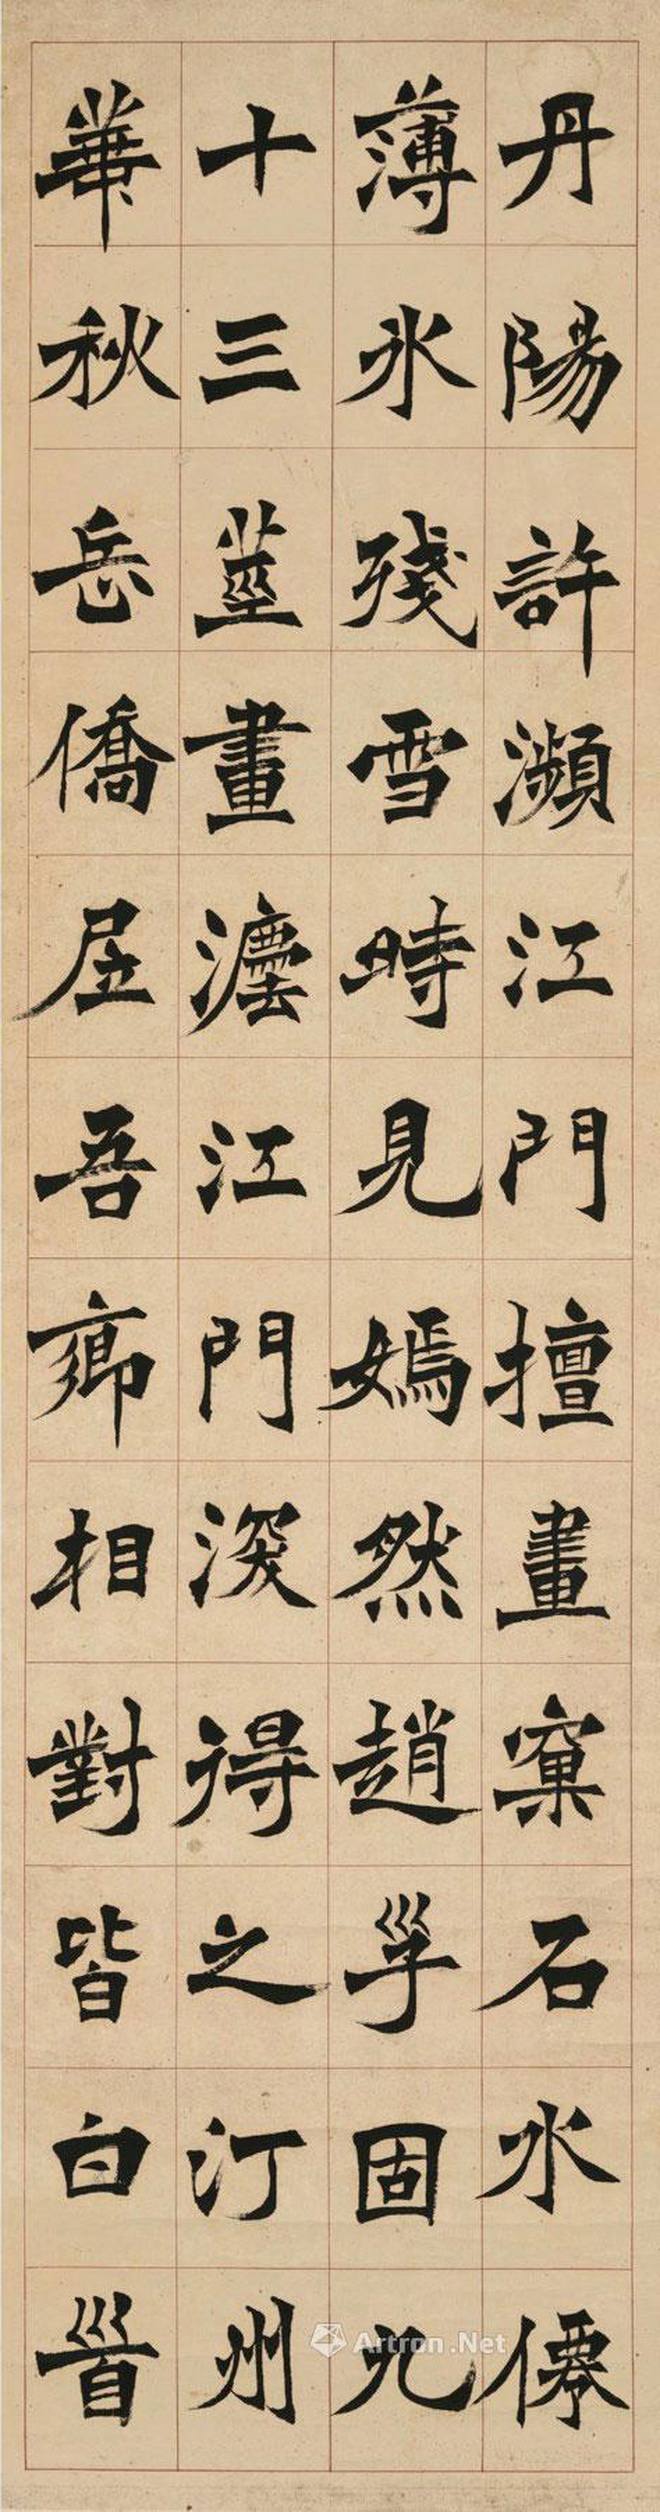 丹陽許瀕江門擅畫窠石水僊
薄氷殘雪時見嫣然趙㜽固九
十三莖畫灋江門深得之汀州
華秋岳僑居吾鄉相對皆白首
Artron.Net